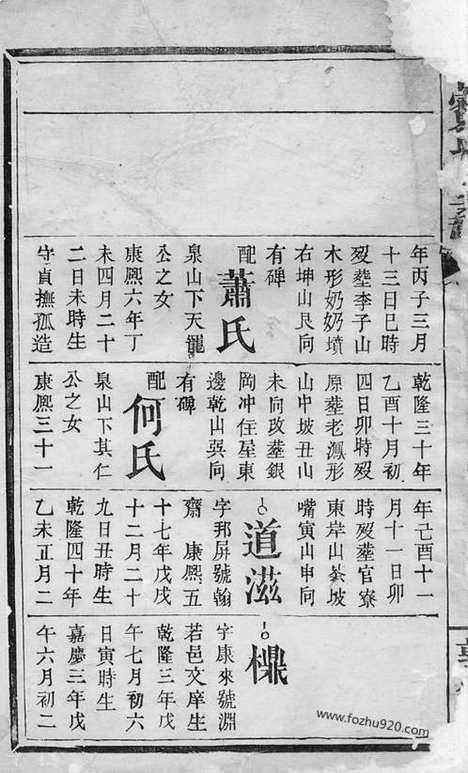 年丙子三月
十三日巳時
歿塟李子山
木形奶奶墳
右坤山艮向
有碑
配蕭氏
泉山下天寵
公之女
康熙六年丁
未四月二十
二日未時生
守貞撫孤造
乾隆三十年
乙酉十月初
四日卯時歿
原塟老鳳形
山中坡丑山
未向改塟銀
岡冲住屋東
邊乾山巽向
有碑
配何氏
泉山下其仁
公之女
康熙三十一
年己酉十一
月十一日卯
時歿塟官寮
東岸山
嘴寅山申向
道滋
字邦屏號翰
齋 康熙五
十七年戊戌
十二月二十
九日丑時生
乾隆四十年
乙未正月二
字康來號淵
若邑文庠生
乾隆三年戊
午七月初六
日寅時生
嘉慶三年戊
午六月初二
www.fozhu920.com